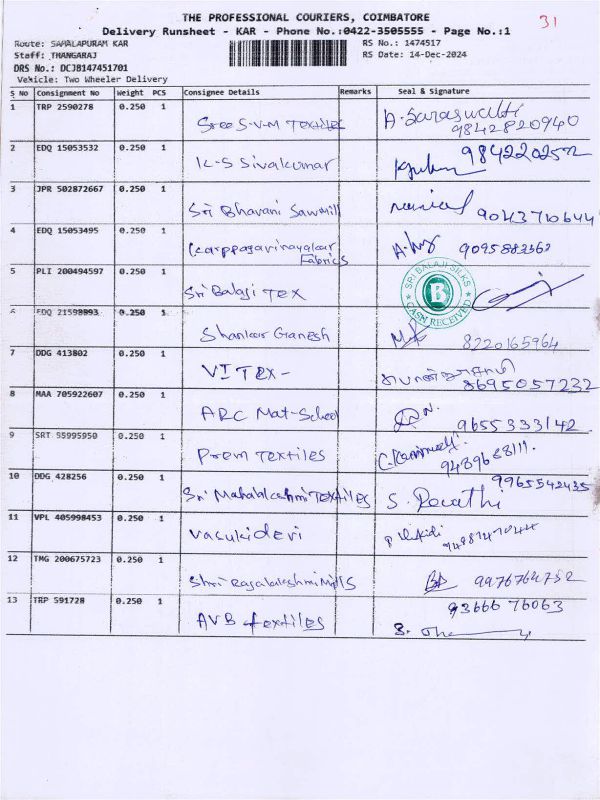 31
THE PROFESSIONAL COURIERS, COIMBATORE
Delivery Runsheet - KAR - Phone No.:0422-3505555 - Page No.:1
Route: SAMALAPURAM KAR
RS No.: 1474517
Staff: THANGARAJ
RS Date: 14-Dec-2024
DRS No.: DCJB147451701
Vehicle: Two Wheeler Delivery
S No Consignment No Weight PCS Consignee Details Remarks Seal & Signature
1 TRP 2590278 0.250 1 Sree S-V-M Textiles A. Saraswathi
9842820940
2 EDQ 15053532 0.250 1 K-S Sivakumar
3 JPR 502872667 0.250 1 Sri Bhavani Sawmill
9043710644
4 EDQ 15053495 0.250 1 Karppagavinayakar
Fabrics
5 PLI 200494597 0.250 1 Sri Balaji Tex
SRI BALAJI SILKS
B
CASH RECEIVED
6 EDQ 21598893 0.250 1 Shankar Ganesh
8220165964
7 DDG 413802 0.250 1 VI Tex-
8695057232
8 MAA 705922607 0.250 1 ARC Mat-School
9655333142
9 SRT 55995950 0.250 1 Prem Textiles
9489688111.
10 DDG 428256 0.250 1 Sri Mahalakshmi Textiles S. Revathi
9965542435
11 VPL 405998453 0.250 1 Vasukidevi
12 TMG 200675723 0.250 1 Shri Rajalakshmi Mills
9976764752
13 TRP 591728 0.250 1 AVB textiles
93666 76063